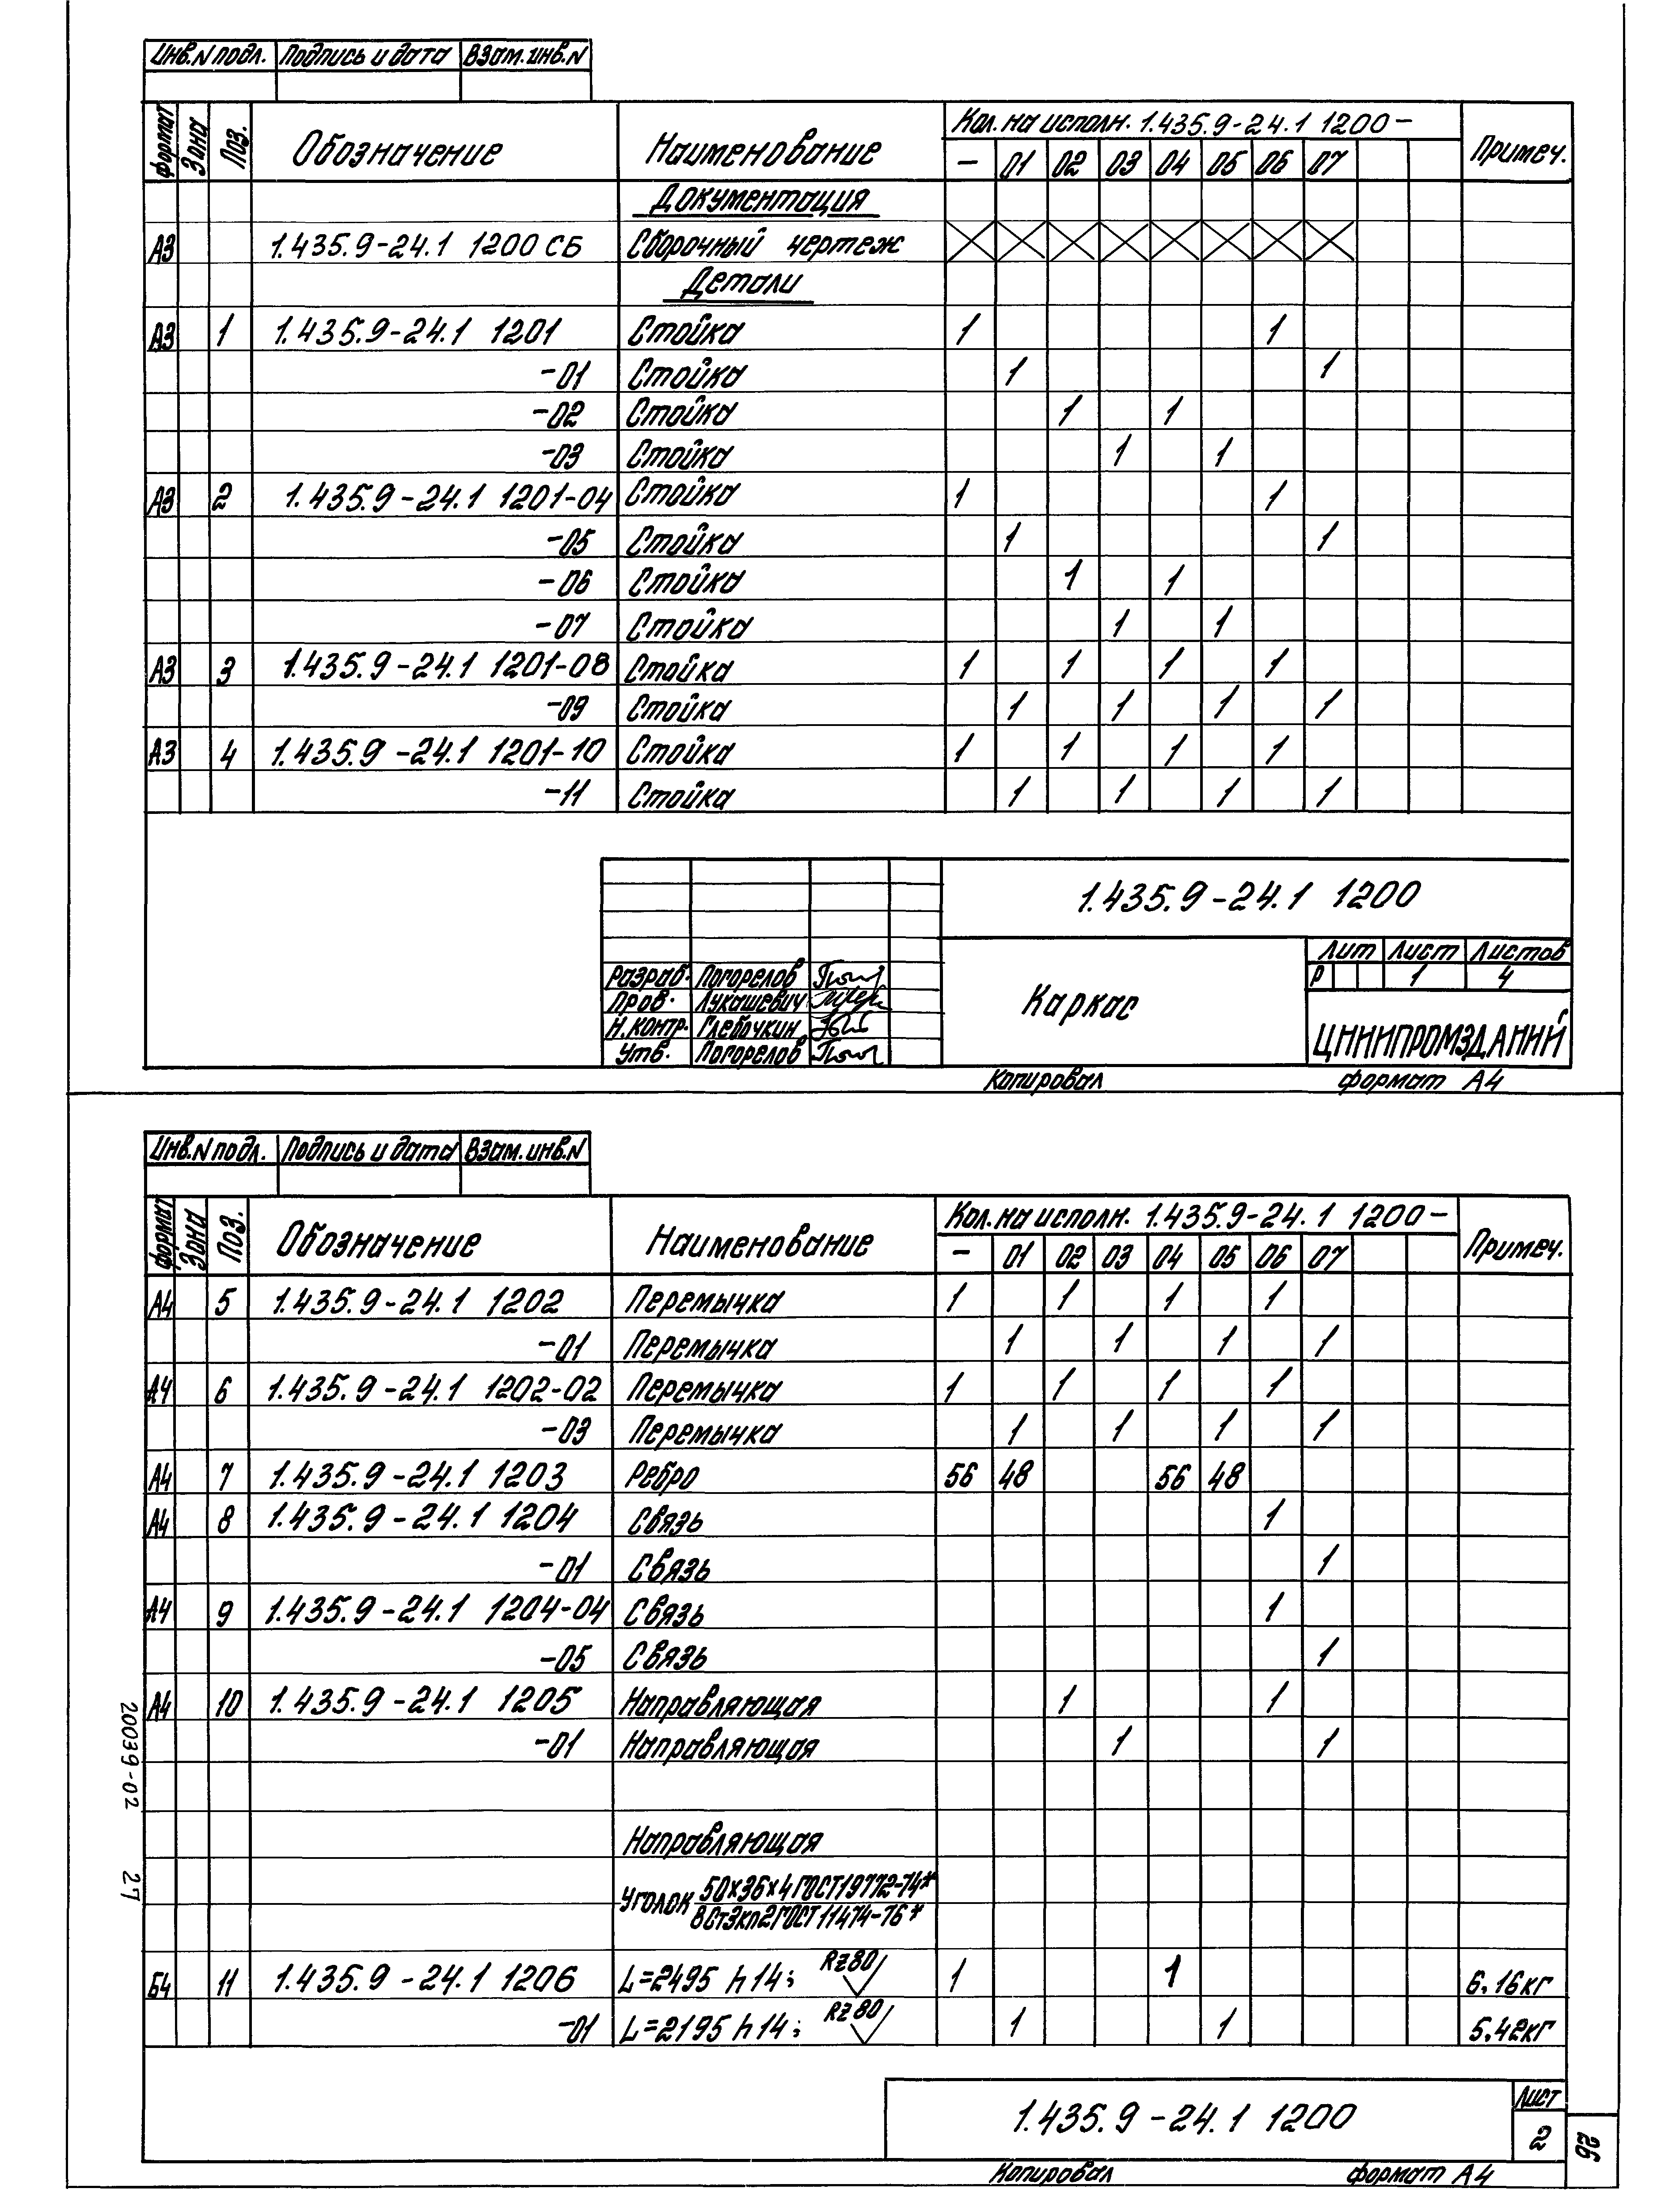 Инв.N подл. Подпись и дата Взам.инв.N
Формат Зона Поз. Обозначение Наименование Кол. на исполн. 1.435.9-24.1 1200- Примеч.
- 01 02 03 04 05 06 07
Документация
А3 1.435.9-24.1 1200 СБ Сборочный чертеж
Детали
А3 1 1.435.9-24.1 1201 Стойка 1 1
-01 Стойка 1 1
-02 Стойка 1 1
-03 Стойка 1 1
А3 2 1.435.9-24.1 1201-04 Стойка 1 1
-05 Стойка 1 1
-06 Стойка 1 1
-07 Стойка 1 1
А3 3 1.435.9-24.1 1201-08 Стойка 1 1 1 1
-09 Стойка 1 1 1 1
А3 4 1.435.9-24.1 1201-10 Стойка 1 1 1 1
-11 Стойка 1 1 1 1
1.435.9-24.1 1200
Разраб. Погорелов
Пров. Лукашевич
Н.контр. Глебочкин
Утв. Погорелов
Каркас
Лит Лист Листов
Р 1 4
ЦНИИПРОМЗДАНИЙ
Копировал формат А4
Инв.N подл. Подпись и дата Взам.инв.N
Формат Зона Поз. Обозначение Наименование Кол. на исполн. 1.435.9-24.1 1200- Примеч.
- 01 02 03 04 05 06 07
А4 5 1.435.9-24.1 1202 Перемычка 1 1 1 1
-01 Перемычка 1 1 1 1
А4 6 1.435.9-24.1 1202-02 Перемычка 1 1 1 1
-03 Перемычка 1 1 1 1
А4 7 1.435.9-24.1 1203 Ребро 56 48 56 48
А4 8 1.435.9-24.1 1204 Связь 1
-01 Связь 1
А4 9 1.435.9-24.1 1204-04 Связь 1
-05 Связь 1
А4 10 1.435.9-24.1 1205 Направляющая 1 1
-01 Направляющая 1 1
Направляющая
Уголок 50х36х4 ГОСТ 19772-74*
ВСт3кп2 ГОСТ 11474-76*
Б4 11 1.435.9-24.1 1206 L=2495 h14; Rz80 1 1 6,16кг
-01 L=2195 h14; Rz80 1 1 5,42кг
1.435.9-24.1 1200
Лист
2
Копировал формат А4
20039-02 27
26